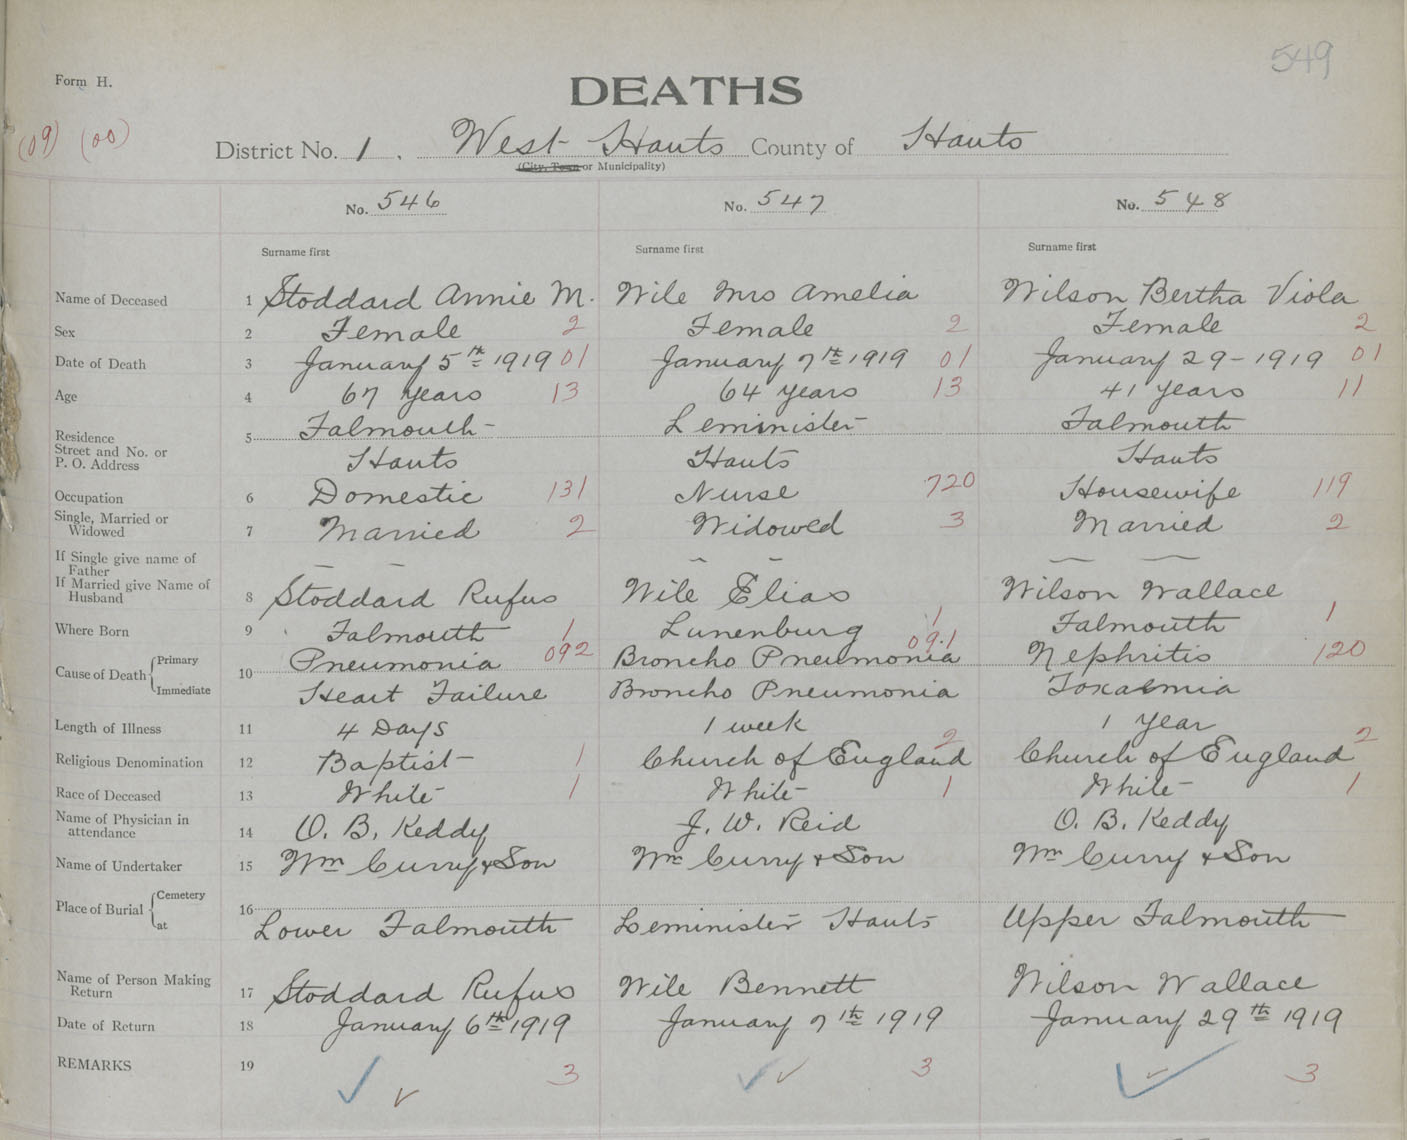 549
Form H.
DEATHS
(09) (00)
District No. 1. West Hants County of Hants
(City, Town or Municipality)
No. 546 No. 547 No. 548
Surname first Surname first Surname first
Name of Deceased 1 Stoddard Annie M. Wile Mrs Amelia Wilson Bertha Viola
Sex 2 Female 2 Female 2 Female 2
Date of Death 3 January 5th 1919 01 January 7th 1919 01 January 29-1919 01
Age 4 67 years 13 64 years 13 41 years 11
Residence Street and No. or P. O. Address 5 Falmouth Leminister Falmouth
Hants Hants Hants
Occupation 6 Domestic 131 Nurse 720 Housewife 119
Single, Married or Widowed 7 Married 2 Widowed 3 Married 2
If Single give name of Father
If Married give Name of Husband 8 Stoddard Rufus Wile Elias Wilson Wallace
Where Born 9 Falmouth 1 Lunenburg 1 Falmouth 1
Cause of Death Primary 10 Pneumonia 092 Broncho Pneumonia 09.1 Nephritis 120
Immediate Heart Failure Broncho Pneumonia Toxaemia
Length of Illness 11 4 Days 1 week 1 Year
Religious Denomination 12 Baptist 1 Church of England 2 Church of England 2
Race of Deceased 13 White 1 White 1 White 1
Name of Physician in attendance 14 O. B. Keddy J. W. Reid O. B. Keddy
Name of Undertaker 15 Wm Curry & Son Wm Curry & Son Wm Curry & Son
Place of Burial Cemetery 16
at Lower Falmouth Leminister Hants Upper Falmouth
Name of Person Making Return 17 Stoddard Rufus Wile Bennett Wilson Wallace
Date of Return 18 January 6th 1919 January 7th 1919 January 29th 1919
REMARKS 19 3 3 3